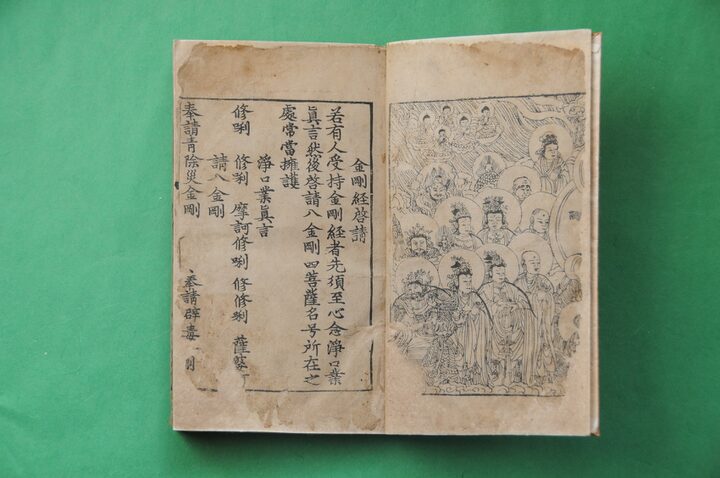 金剛經啓請
若有人受持金剛經者先須至心念淨口業
眞言然後啓請八金剛四菩薩名号所在之
處常當擁護
淨口業眞言
修唎 修唎 摩訶修唎 修修唎 薩
請八金剛
奉請青除災金剛 奉請辟毒